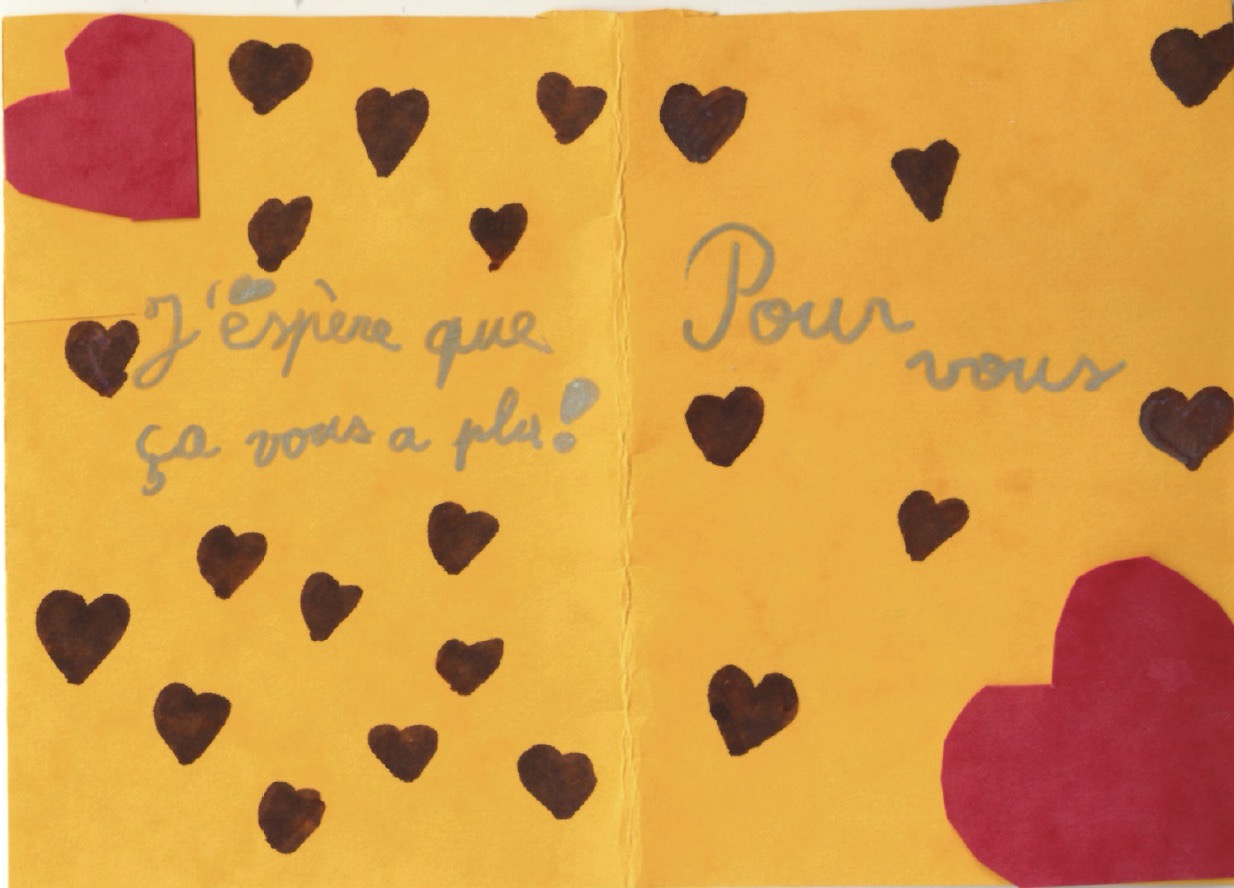 J'espère que
ça vous a plu!
Pour
vous